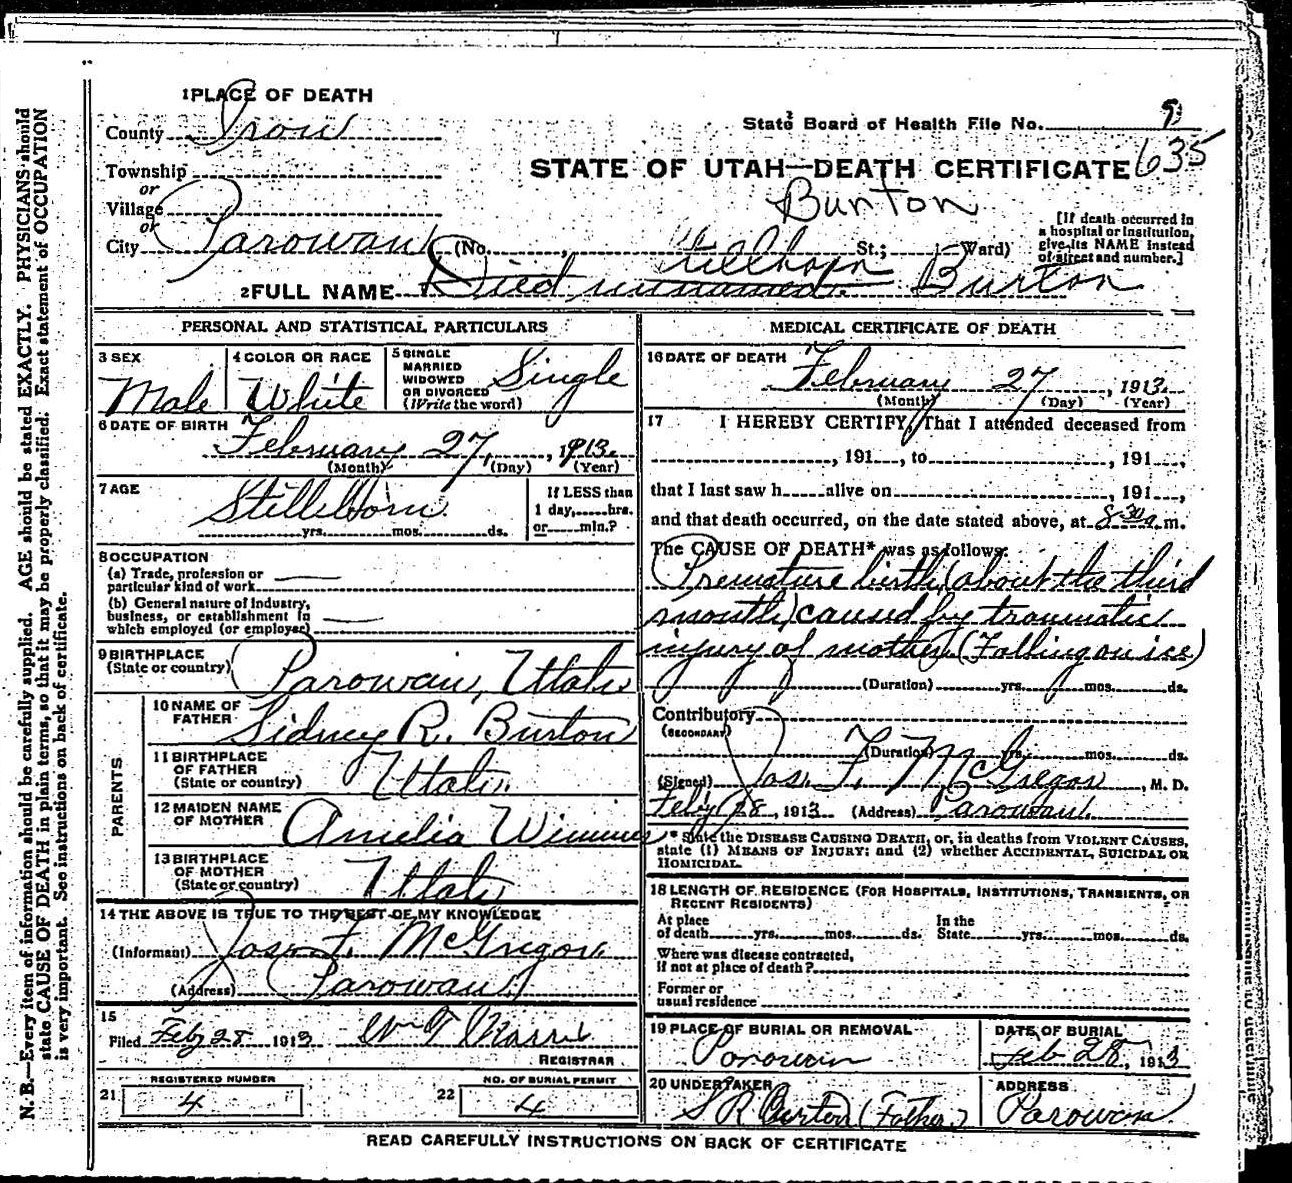 1 PLACE OF DEATH
County Iron
State Board of Health File No. 9
635
Township
or
Village
or
City Parowan (No. , St.; Ward)
STATE OF UTAH—DEATH CERTIFICATE
Burton
[If death occurred in
a hospital or institution,
give its NAME instead
of street and number.]
Stillborn
2 FULL NAME Died unnamed. Burton
PERSONAL AND STATISTICAL PARTICULARS
3 SEX
Male
4 COLOR OR RACE
White
5 SINGLE
MARRIED
WIDOWED
OR DIVORCED
(Write the word)
Single
6 DATE OF BIRTH
February 27, , 1913.
(Month) (Day) (Year)
7 AGE
Stillborn
yrs. mos. ds.
If LESS than
1 day, hrs.
or min.?
8 OCCUPATION
(a) Trade, profession or
particular kind of work
(b) General nature of industry,
business, or establishment in
which employed (or employer)
9 BIRTHPLACE
(State or country)
Parowan, Utah
PARENTS
10 NAME OF
FATHER
Sidney R. Burton
11 BIRTHPLACE
OF FATHER
(State or country)
Utah.
12 MAIDEN NAME
OF MOTHER
Amelia Wimmer
13 BIRTHPLACE
OF MOTHER
(State or country)
Utah
14 THE ABOVE IS TRUE TO THE BEST OF MY KNOWLEDGE
(Informant) Jos. F. McGregor.
(Address) Parowan
15
Filed Feb 28 1913 Wm
REGISTRAR
21 REGISTERED NUMBER
4
22 NO. OF BURIAL PERMIT
4
MEDICAL CERTIFICATE OF DEATH
16 DATE OF DEATH
February 27 , 1913.
(Month) (Day) (Year)
17 I HEREBY CERTIFY, That I attended deceased from
, 191 , to , 191 ,
that I last saw h alive on , 191 ,
and that death occurred, on the date stated above, at 8 30 a. m.
The CAUSE OF DEATH* was as follows:
Premature birth (about the third
month) caused by traumatic
injury of mother (Falling on ice)
(Duration) yrs. mos. ds.
Contributory
(SECONDARY)
(Duration) yrs. mos. ds.
(Signed) Jos. F. McGregor , M. D.
Feby 28, 1913 (Address) Parowan.
* State the DISEASE CAUSING DEATH, or, in deaths from VIOLENT CAUSES,
state (1) MEANS OF INJURY; and (2) whether ACCIDENTAL, SUICIDAL OR
HOMICIDAL.
18 LENGTH OF RESIDENCE (FOR HOSPITALS, INSTITUTIONS, TRANSIENTS, OR
RECENT RESIDENTS)
At place
of death yrs. mos. ds.
In the
State yrs. mos. ds.
Where was disease contracted,
if not at place of death?
Former or
usual residence
19 PLACE OF BURIAL OR REMOVAL
Parowan
DATE OF BURIAL
Feb 28, 1913
20 UNDERTAKER
S R Burton (Father)
ADDRESS
Parowan
READ CAREFULLY INSTRUCTIONS ON BACK OF CERTIFICATE
N. B.—Every item of information should be carefully supplied. AGE should be stated EXACTLY. PHYSICIANS should
state CAUSE OF DEATH in plain terms, so that it may be properly classified. Exact statement of OCCUPATION
is very important. See instructions on back of certificate.